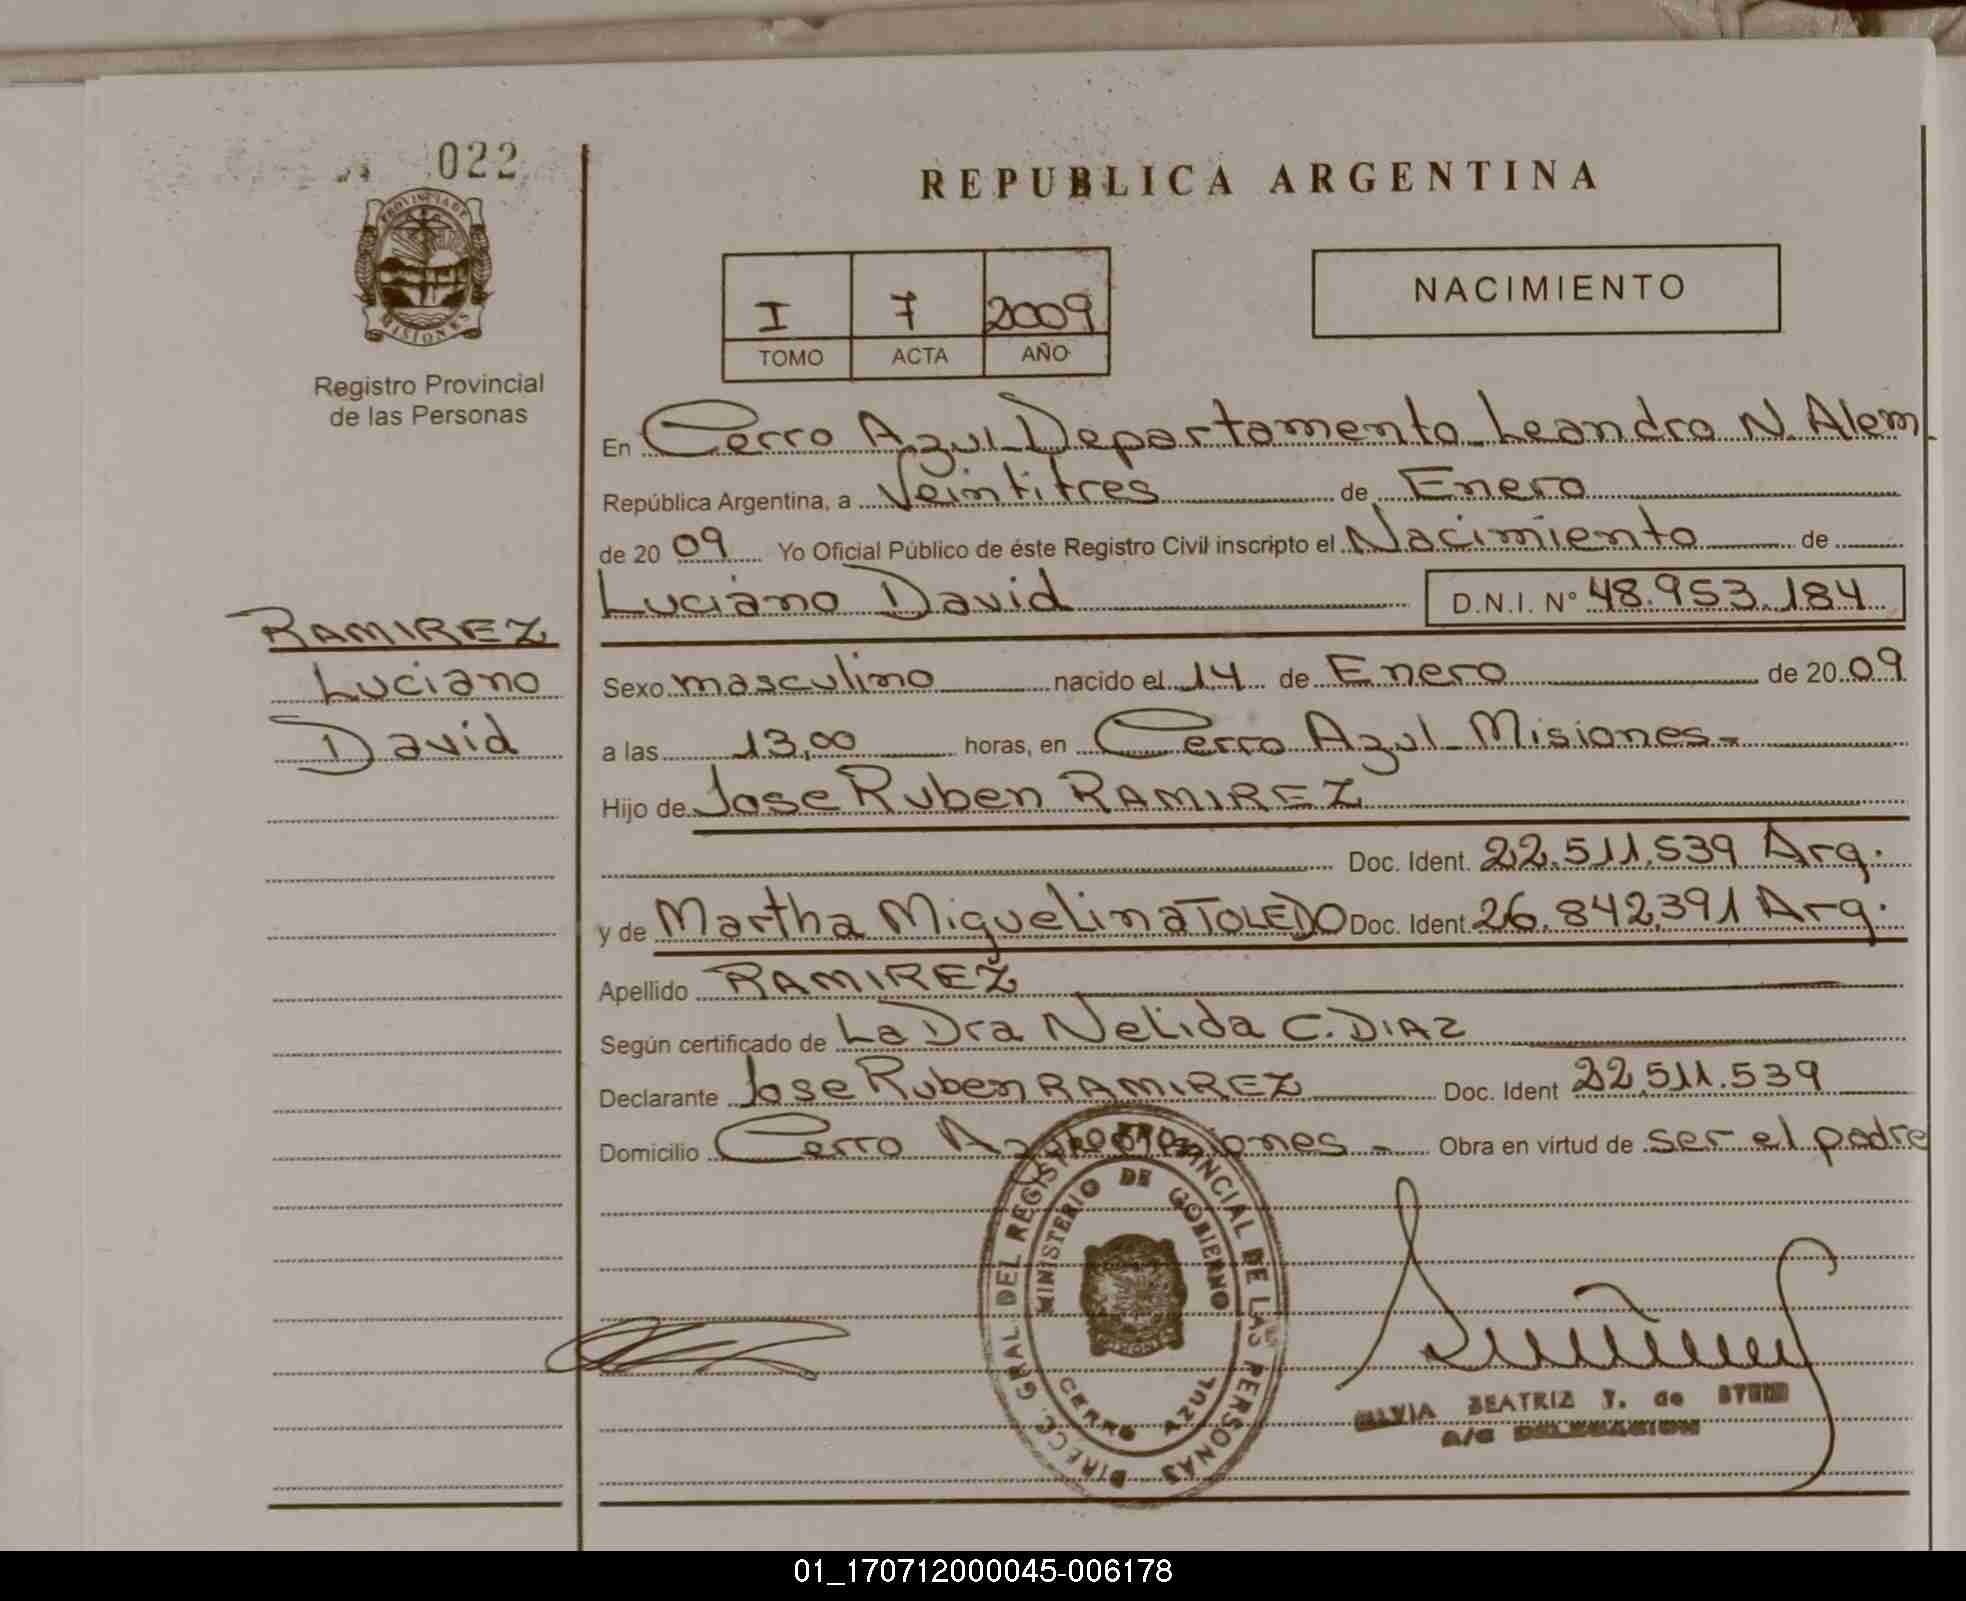 022
PROVINCIA DE
MISIONES
Registro Provincial
de las Personas
REPUBLICA ARGENTINA
I 7 2009
TOMO ACTA AÑO
NACIMIENTO
En Cerro Azul Departamento Leandro N. Alem
República Argentina, a Veintitres de Enero
de 20 09 Yo Oficial Público de éste Registro Civil inscripto el Nacimiento de
Luciano David D.N.I. Nº 48.953.184
RAMIREZ
Luciano
David
Sexo masculino nacido el 14 de Enero de 20 09
a las 13,00 horas, en Cerro Azul Misiones-
Hijo de Jose Ruben RAMIREZ
Doc. Ident. 22.511.539 Arg.
y de Martha Miguelina TOLEDO Doc. Ident. 26.842,391 Arg.
Apellido RAMIREZ
Según certificado de La Dra Nelida C. DIAZ
Declarante Jose Ruben RAMIREZ Doc. Ident 22.511.539
Domicilio Cerro Azul Misiones - Obra en virtud de ser el padre
DIRECC. GRAL DEL REGISTRO PROVINCIAL DE LAS PERSONAS
MINISTERIO DE GOBIERNO
CERRO AZUL
SILVIA BEATRIZ Y. de
A/C DELEGACION
01_170712000045-006178